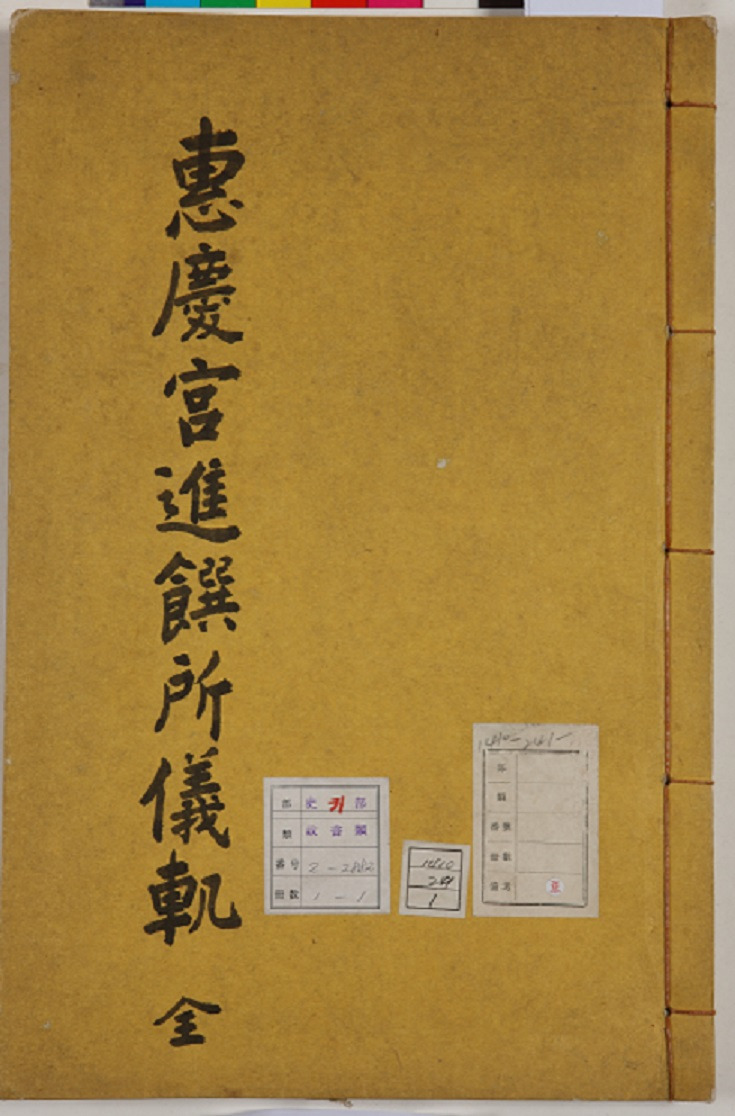 惠慶宮進饌所儀軌 全
部 史 部
類 政書類
番号 2-2882
冊数 1-1
1
部
類
番號
冊數
備考